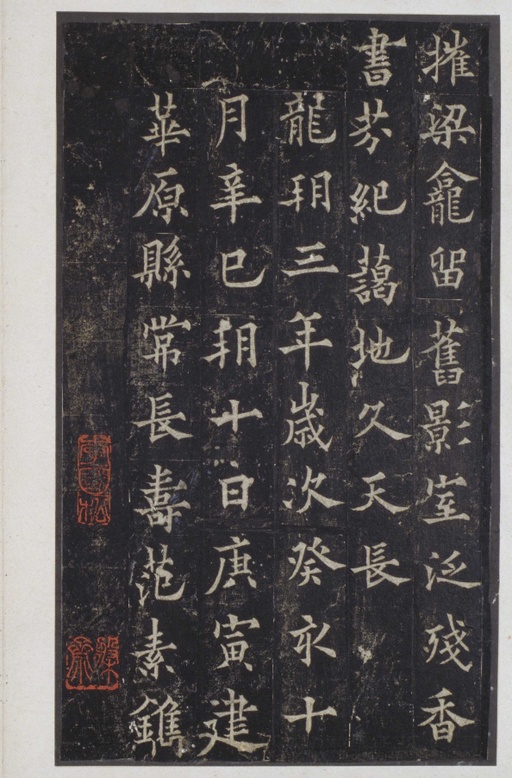 摧梁龕留舊影室泛殘香
書芬紀藹地久天長
龍朔三年歲次癸亥十
月辛巳朔十日庚寅建
華原縣常長壽范素鐫
李國松